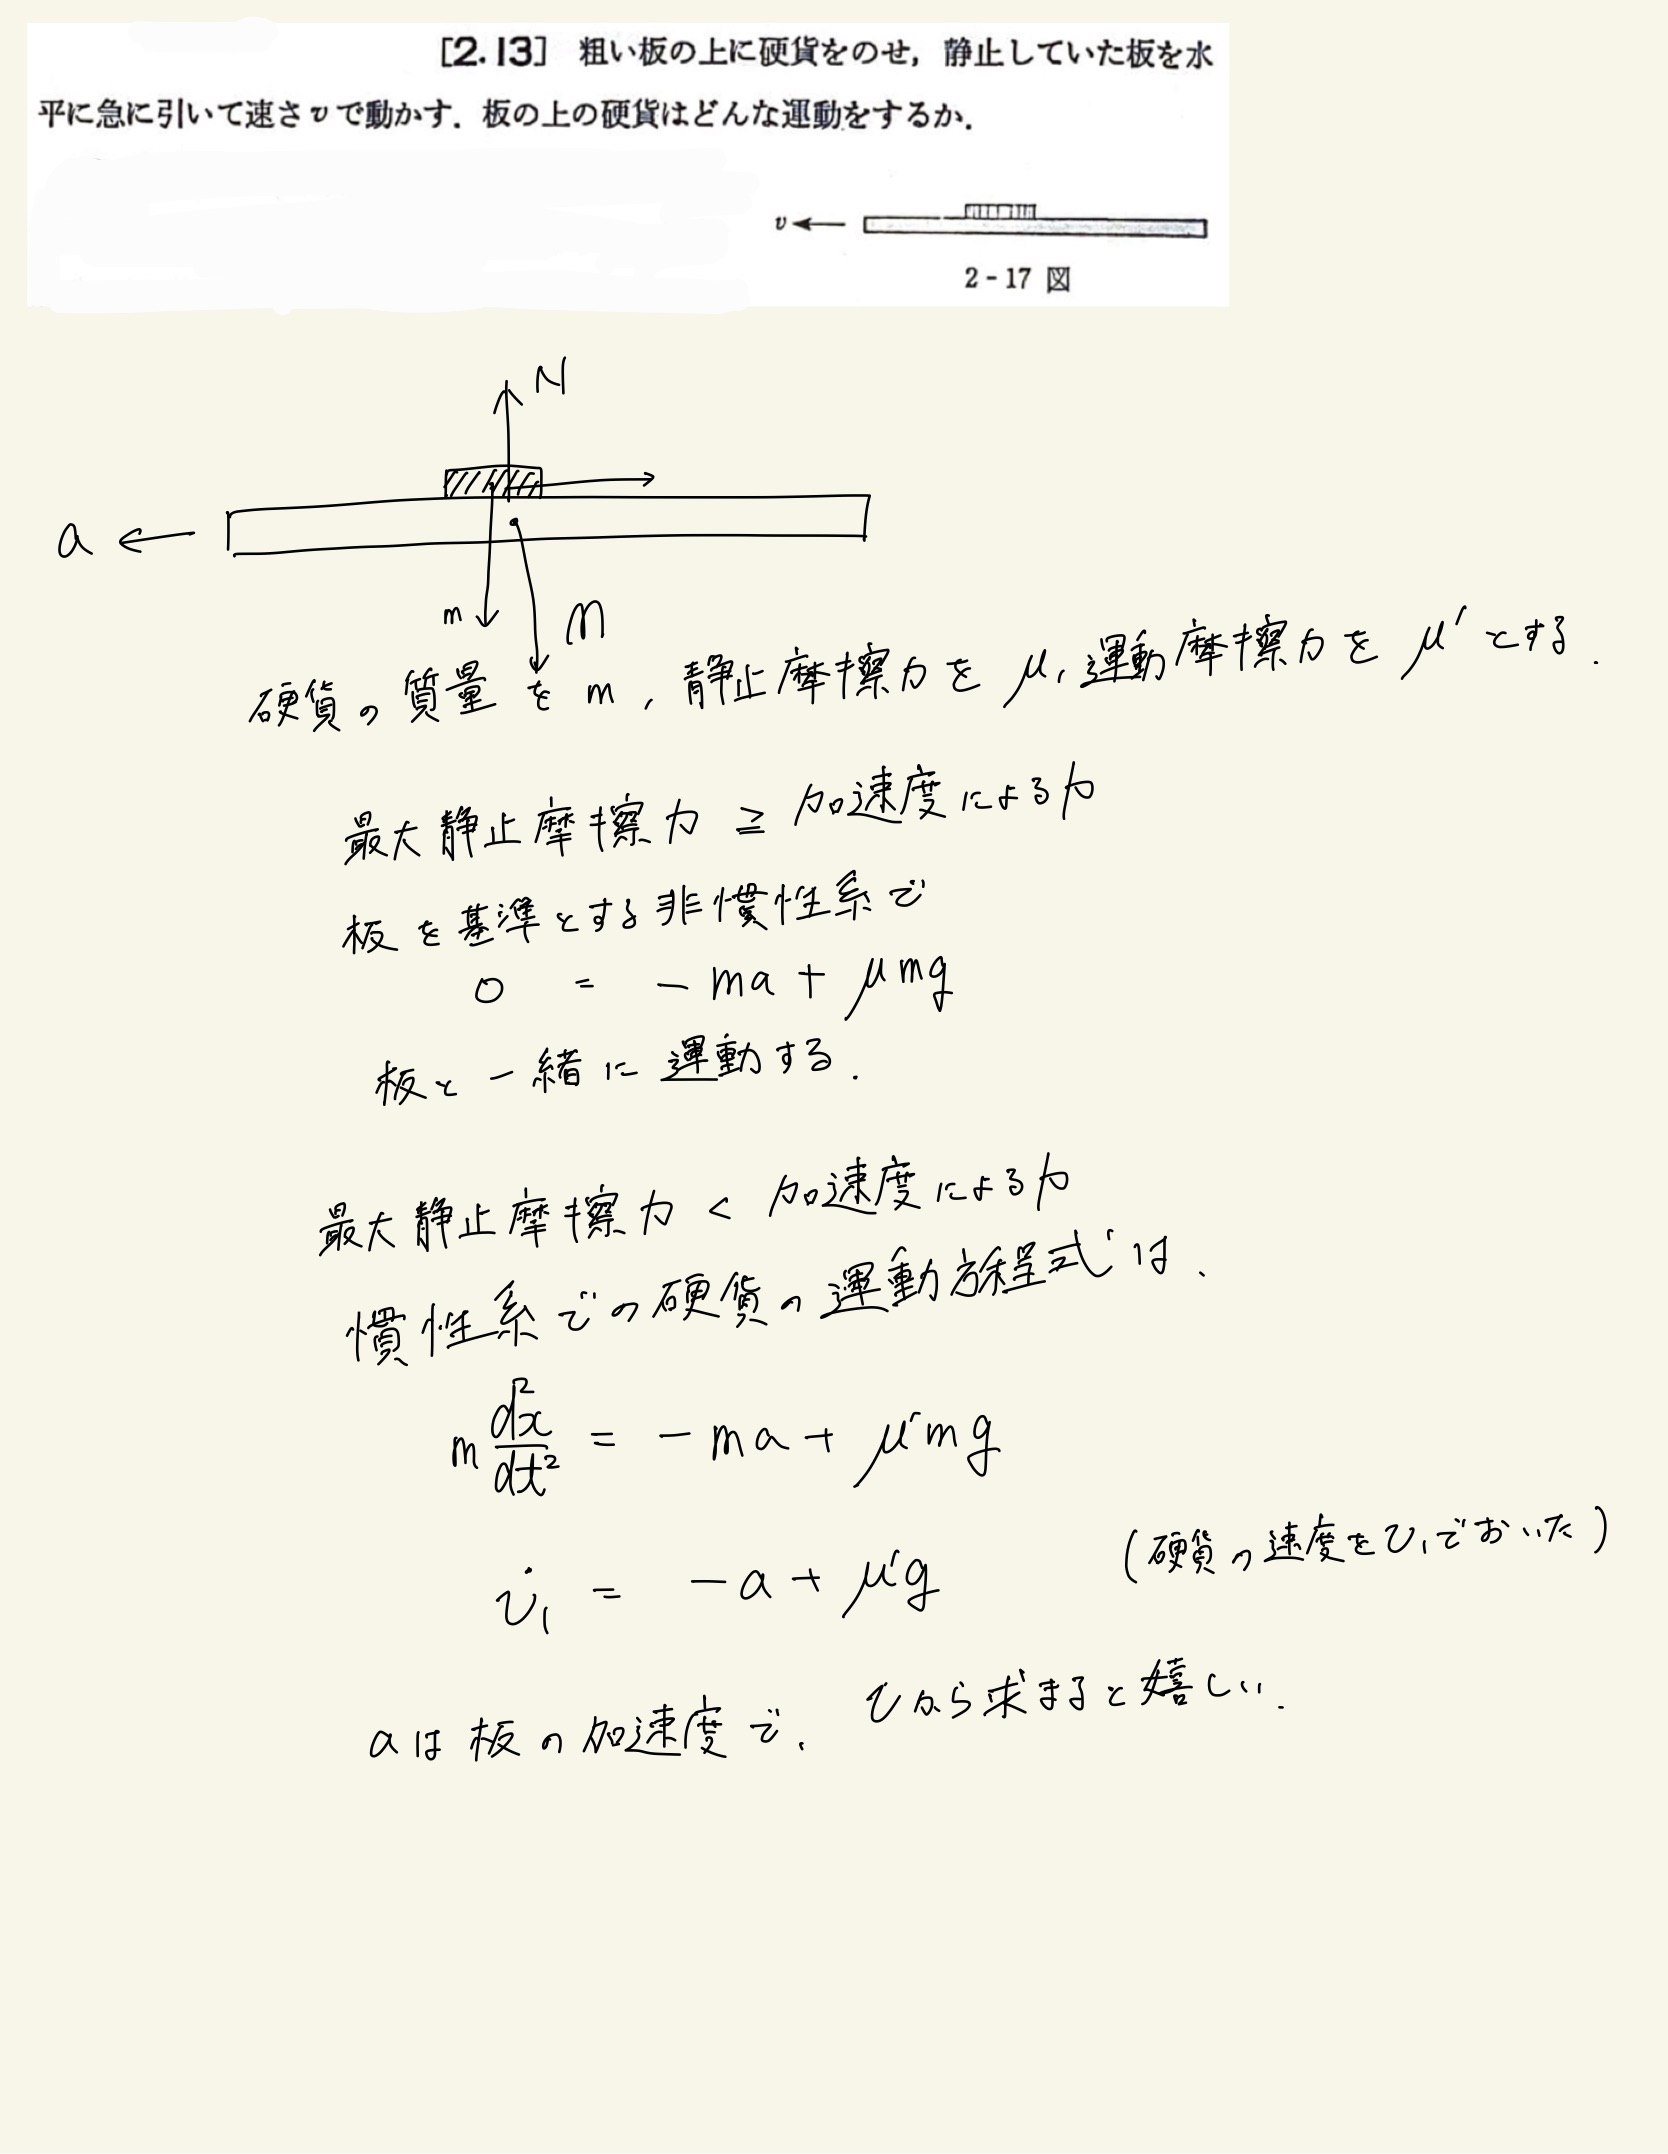 [2.13] 粗い板の上に硬貨をのせ，静止していた板を水
平に急に引いて速さ v で動かす．板の上の硬貨はどんな運動をするか．
v
2-17 図
N
a
m
M
硬貨の質量をm，静止摩擦力をμ，運動摩擦力をμ′とする．
最大静止摩擦力 ≧ 加速度による力
板を基準とする非慣性系で
0 = -ma + μmg
板と一緒に運動する．
最大静止摩擦力 < 加速度による力
慣性系での硬貨の運動方程式は，
m d²x/dt² = -ma + μ′mg
v̇₁ = -a + μ′g (硬貨の速度をv₁でおいた)
aは板の加速度で， vから求まると嬉しい．